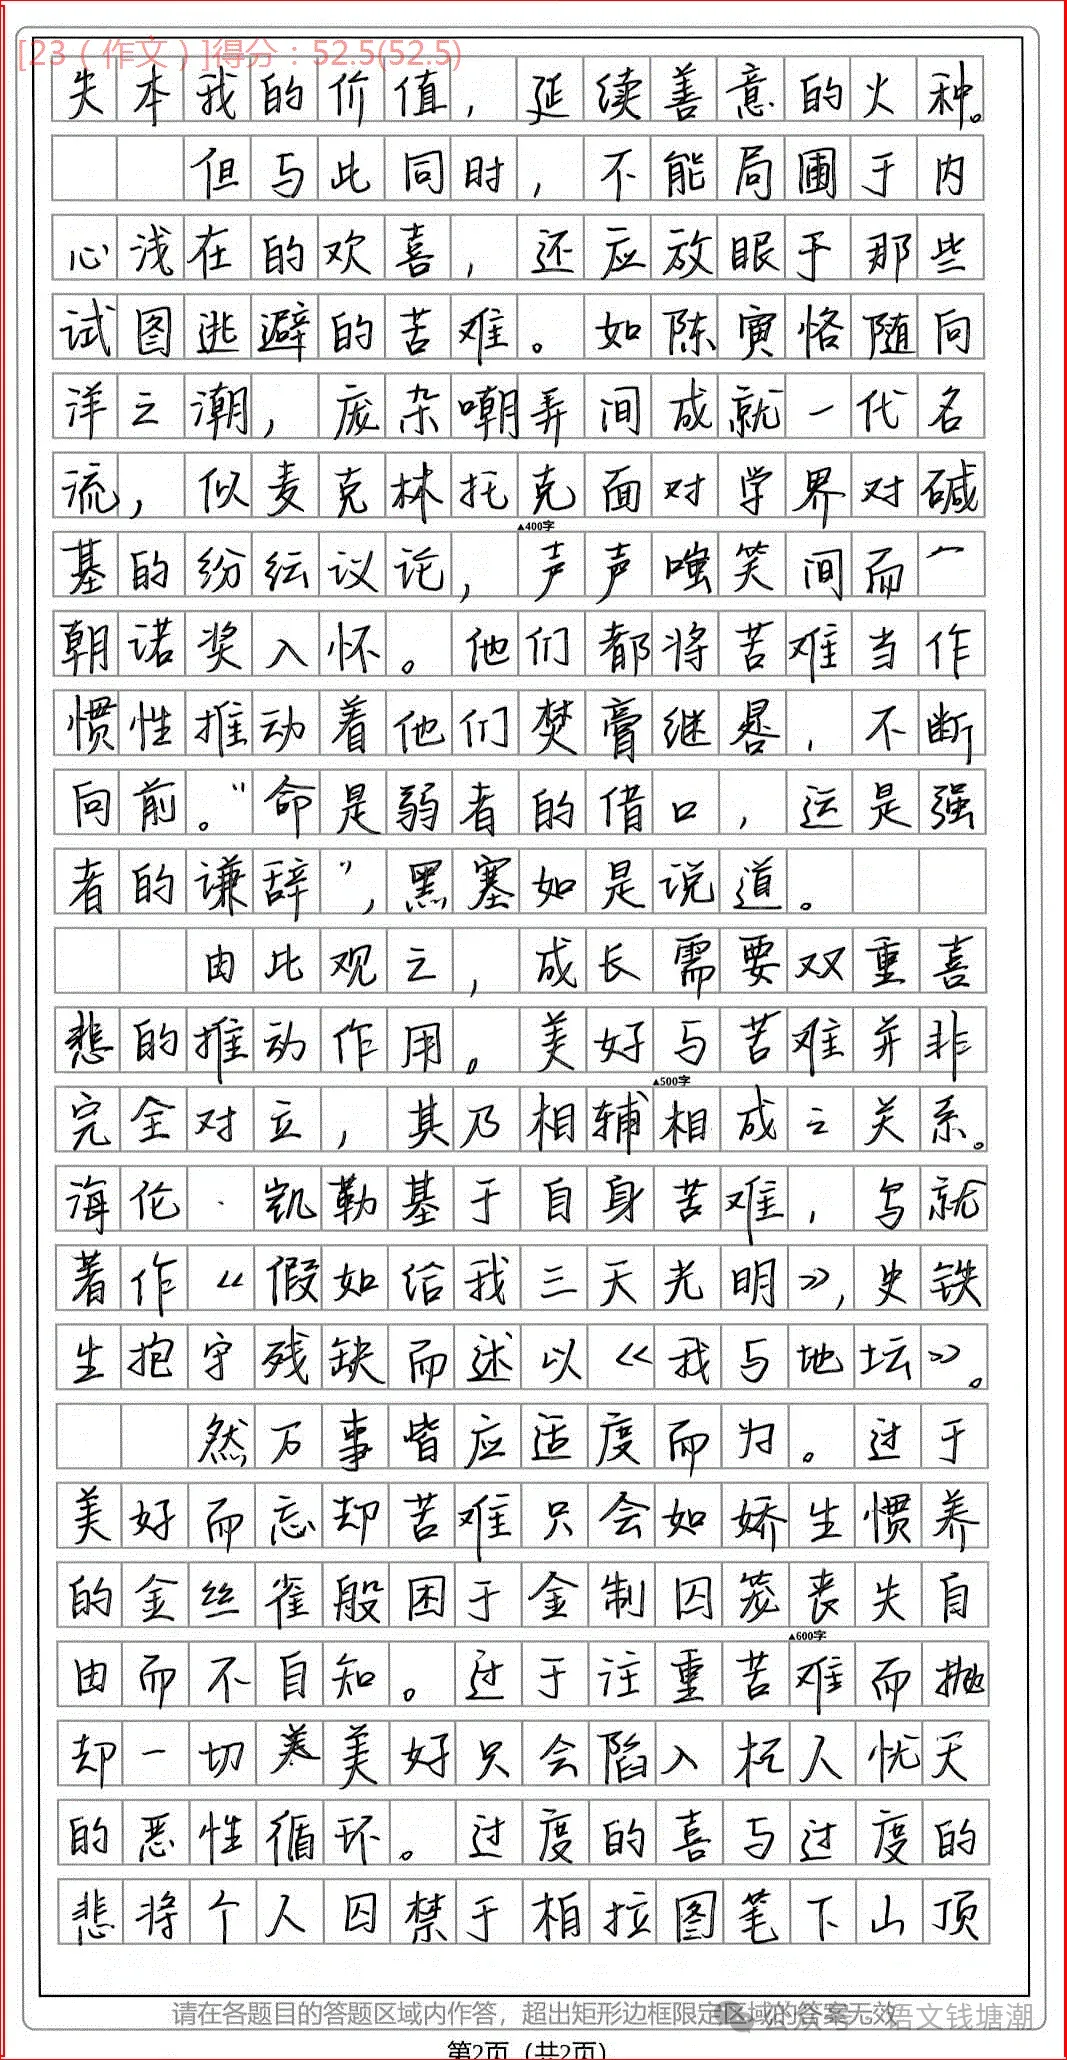 [23（作文）]得分：52.5(52.5)
失本我的价值，延续善意的火种。
但与此同时，不能局圃于内
心浅在的欢喜，还应放眼于那些
试图逃避的苦难。如陈寅恪随向
洋之潮，庞杂嘲弄间成就一代名
流，似麦克林托克面对学界对碱
▲400字
基的纷纭议论，声声嗤笑间而一
朝诺奖入怀。他们都将苦难当作
惯性推动着他们焚膏继晷，不断
向前。“命是弱者的借口，运是强
者的谦辞”，黑塞如是说道。
由此观之，成长需要双重喜
悲的推动作用。美好与苦难并非
▲500字
完全对立，其乃相辅相成之关系。
海伦·凯勒基于自身苦难，写就
著作《假如给我三天光明》，史铁
生抱守残缺而述以《我与地坛》。
然万事皆应适度而为。过于
美好而忘却苦难只会如娇生惯养
的金丝雀般困于金制囚笼丧失自
▲600字
由而不自知。过于注重苦难而抛
却一切美好只会陷入杞人忧天
的恶性循环。过度的喜与过度的
悲将个人囚禁于柏拉图笔下山顶
请在各题目的答题区域内作答，超出矩形边框限定区域的答案无效
公众号 语文钱塘潮
第2页（共2页）